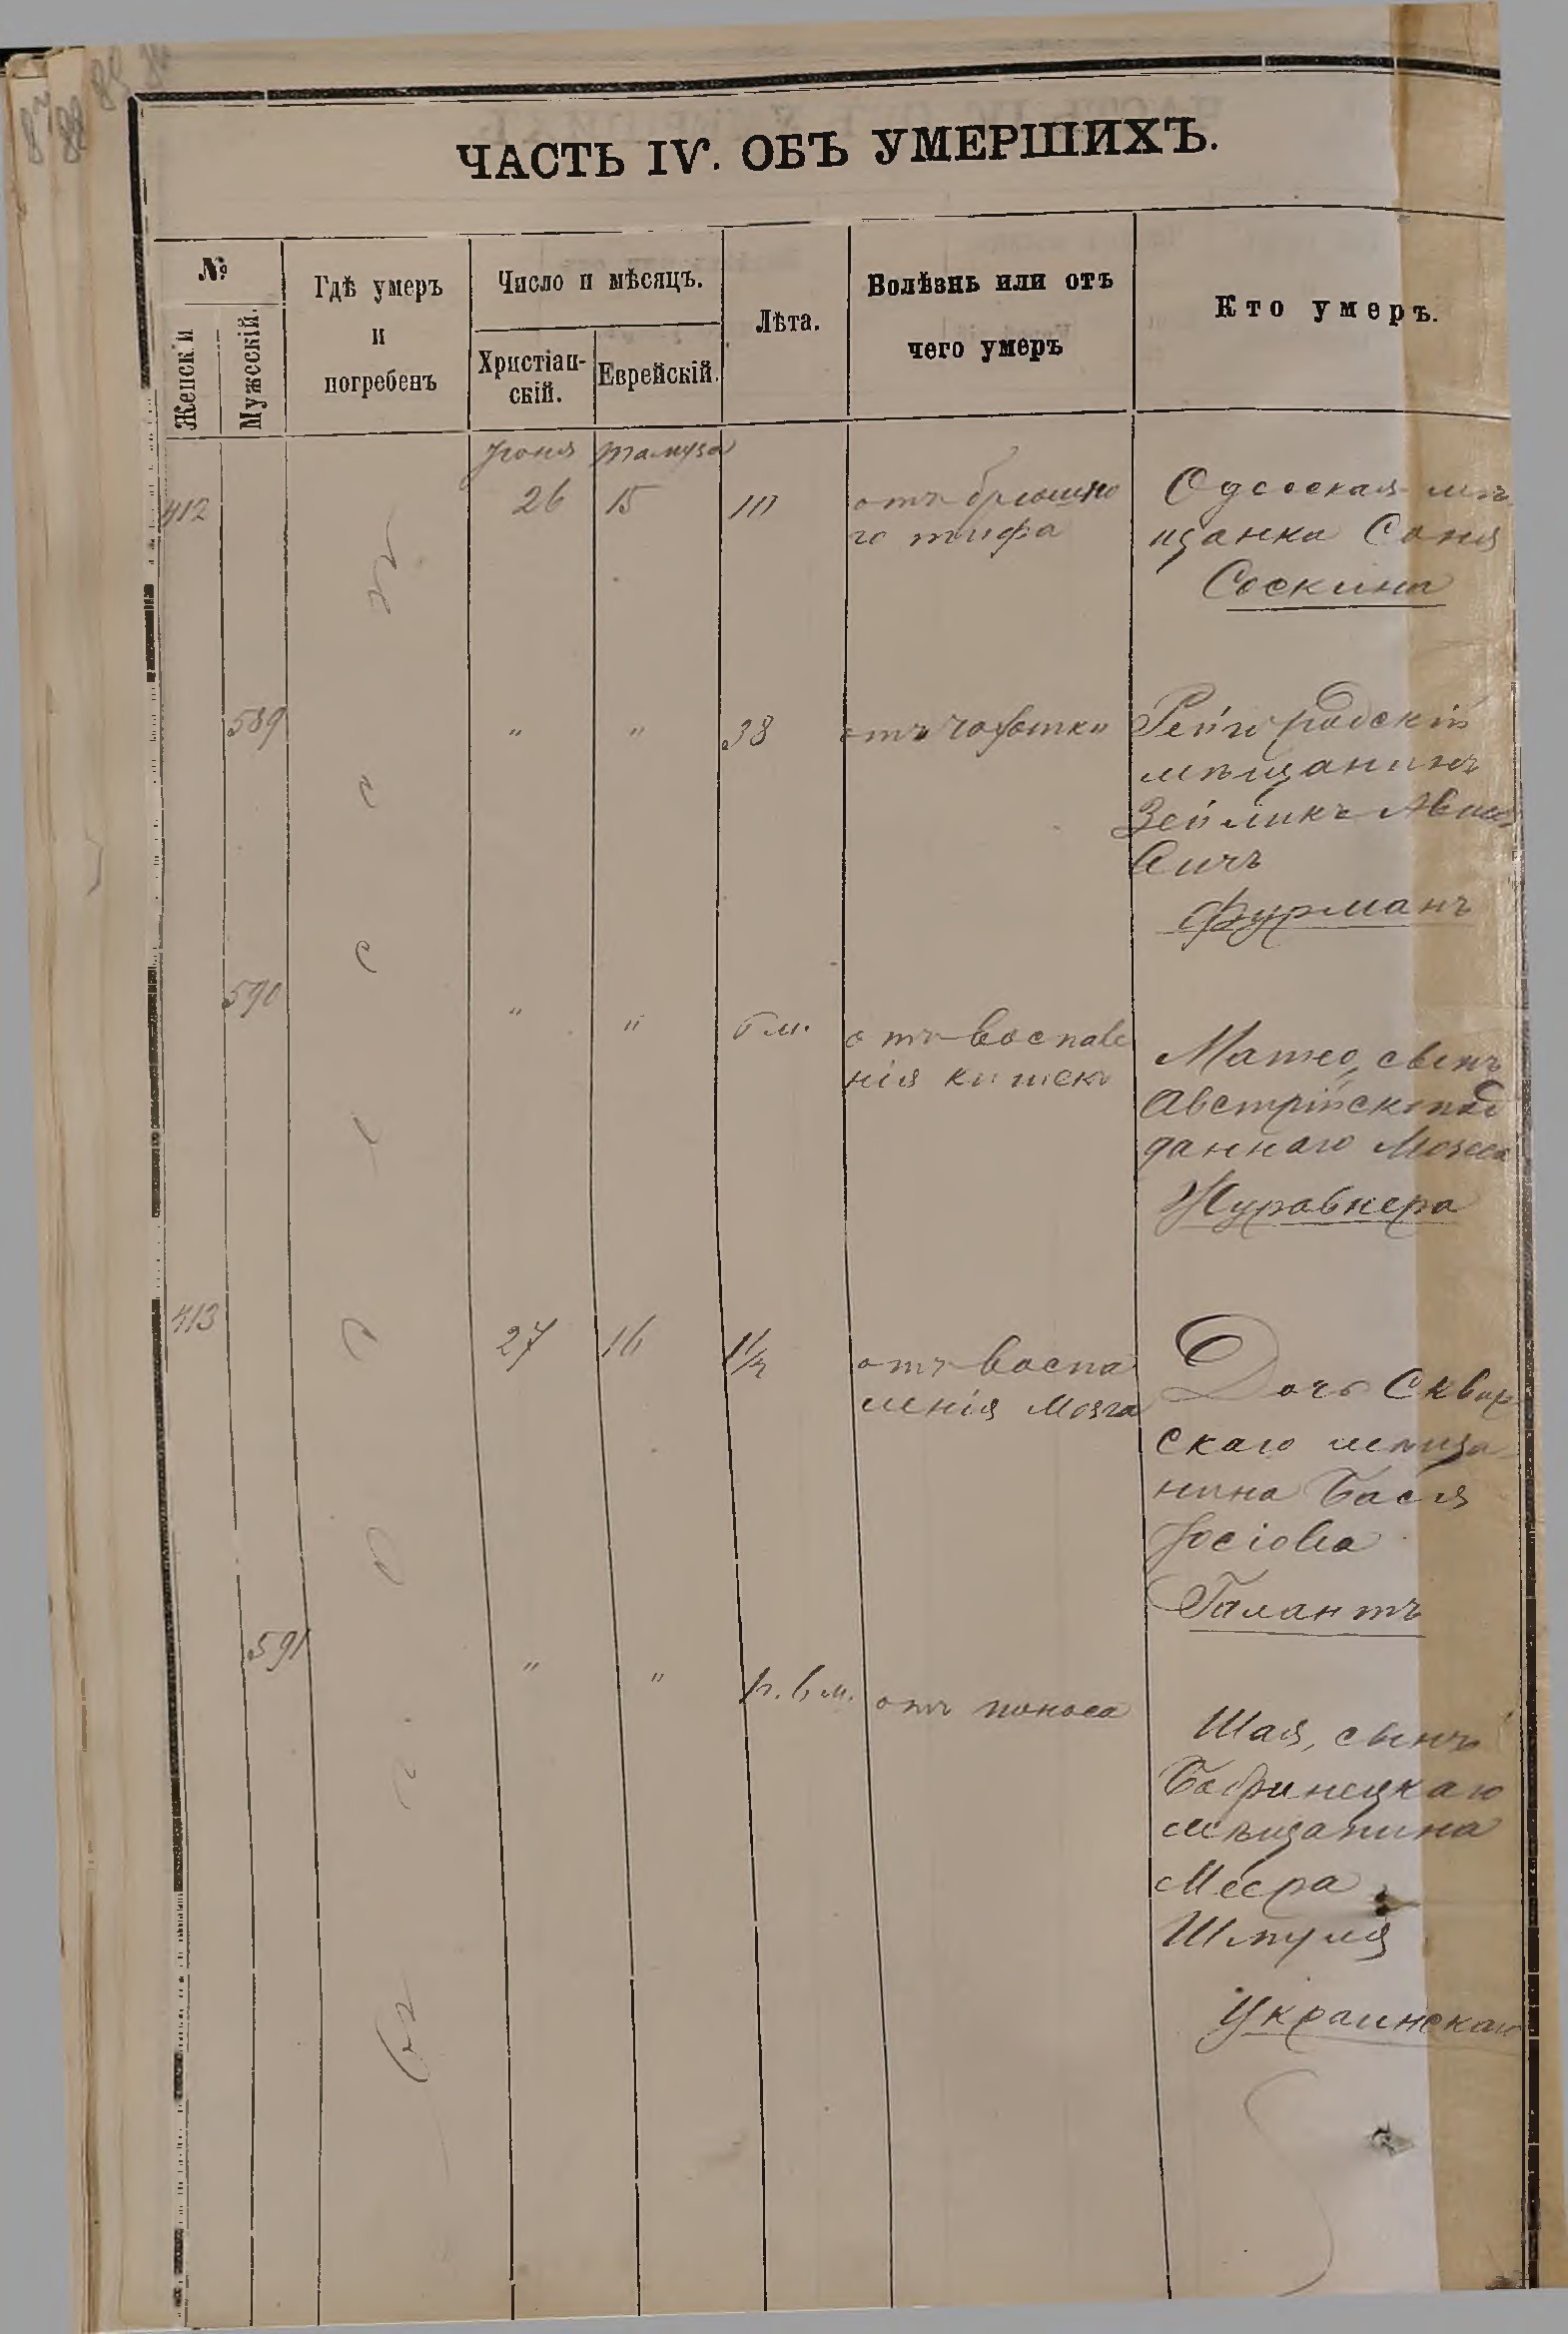 ЧАСТЬ IV. ОБЪ УМЕРШИХЪ.
№
Женскій
Мужескій.
Гдѣ умеръ
и
погребенъ
Число и мѣсяцъ.
Христіан-
скій.
Еврейскій.
Лѣта.
Болѣзнь или отъ
чего умеръ
Кто умеръ.
Іюня Тамуза
412
26 15
отъ брюшно
го тифа
Одесская мѣ
щанка Соня
Соскина
589
" "
38
отъ чахотки
Рейгородскій
мѣщанинъ
Зейликъ
Фурманъ
590
" "
отъ воспале
нія кишекъ
Матео, сынъ
Австрійск. под
даннаго Мозеса
Журавнера
413
27 16
отъ воспа
ленія мозга
Дочь Сквир
скаго мѣща
нина Бася
Іосіова
Галантъ
591
" "
отъ поноса
Шая, сынъ
Бобринецкаго
мѣщанина
Меера
Шмуля
Украинскаго
Одесса